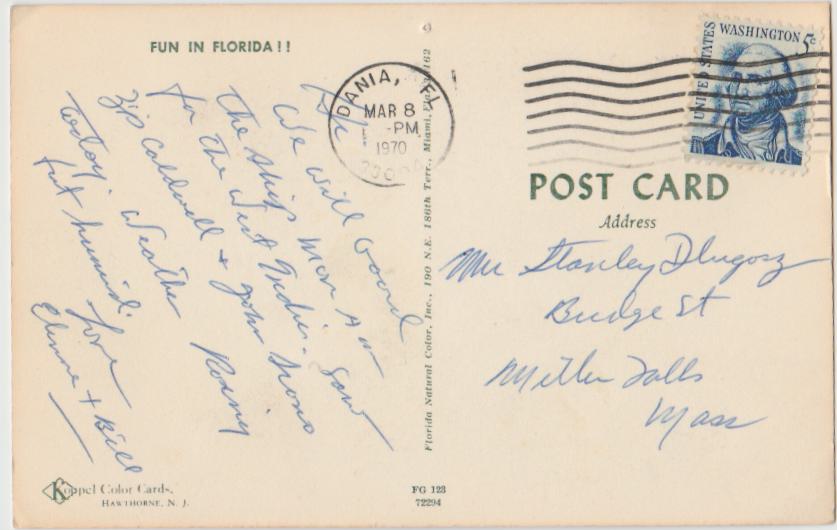 FUN IN FLORIDA!!
Hi
We will board
the ship Mon AM
for the West Indies. Saw
Zip Caldwell & John
today. Weather Rainy
but humid.
Love
& Bill
Koppel Color Cards,
HAWTHORNE, N. J.
FG 123
72294
Florida Natural Color, Inc., 190 N.E. 186th Terr., Miami, Fla. 33162
DANIA, FL
MAR 8
PM
1970
UNITED STATES
WASHINGTON 5c
POST CARD
Address
Mrs Stanley Dlugosz
Bridge St
Millers Falls
Mass